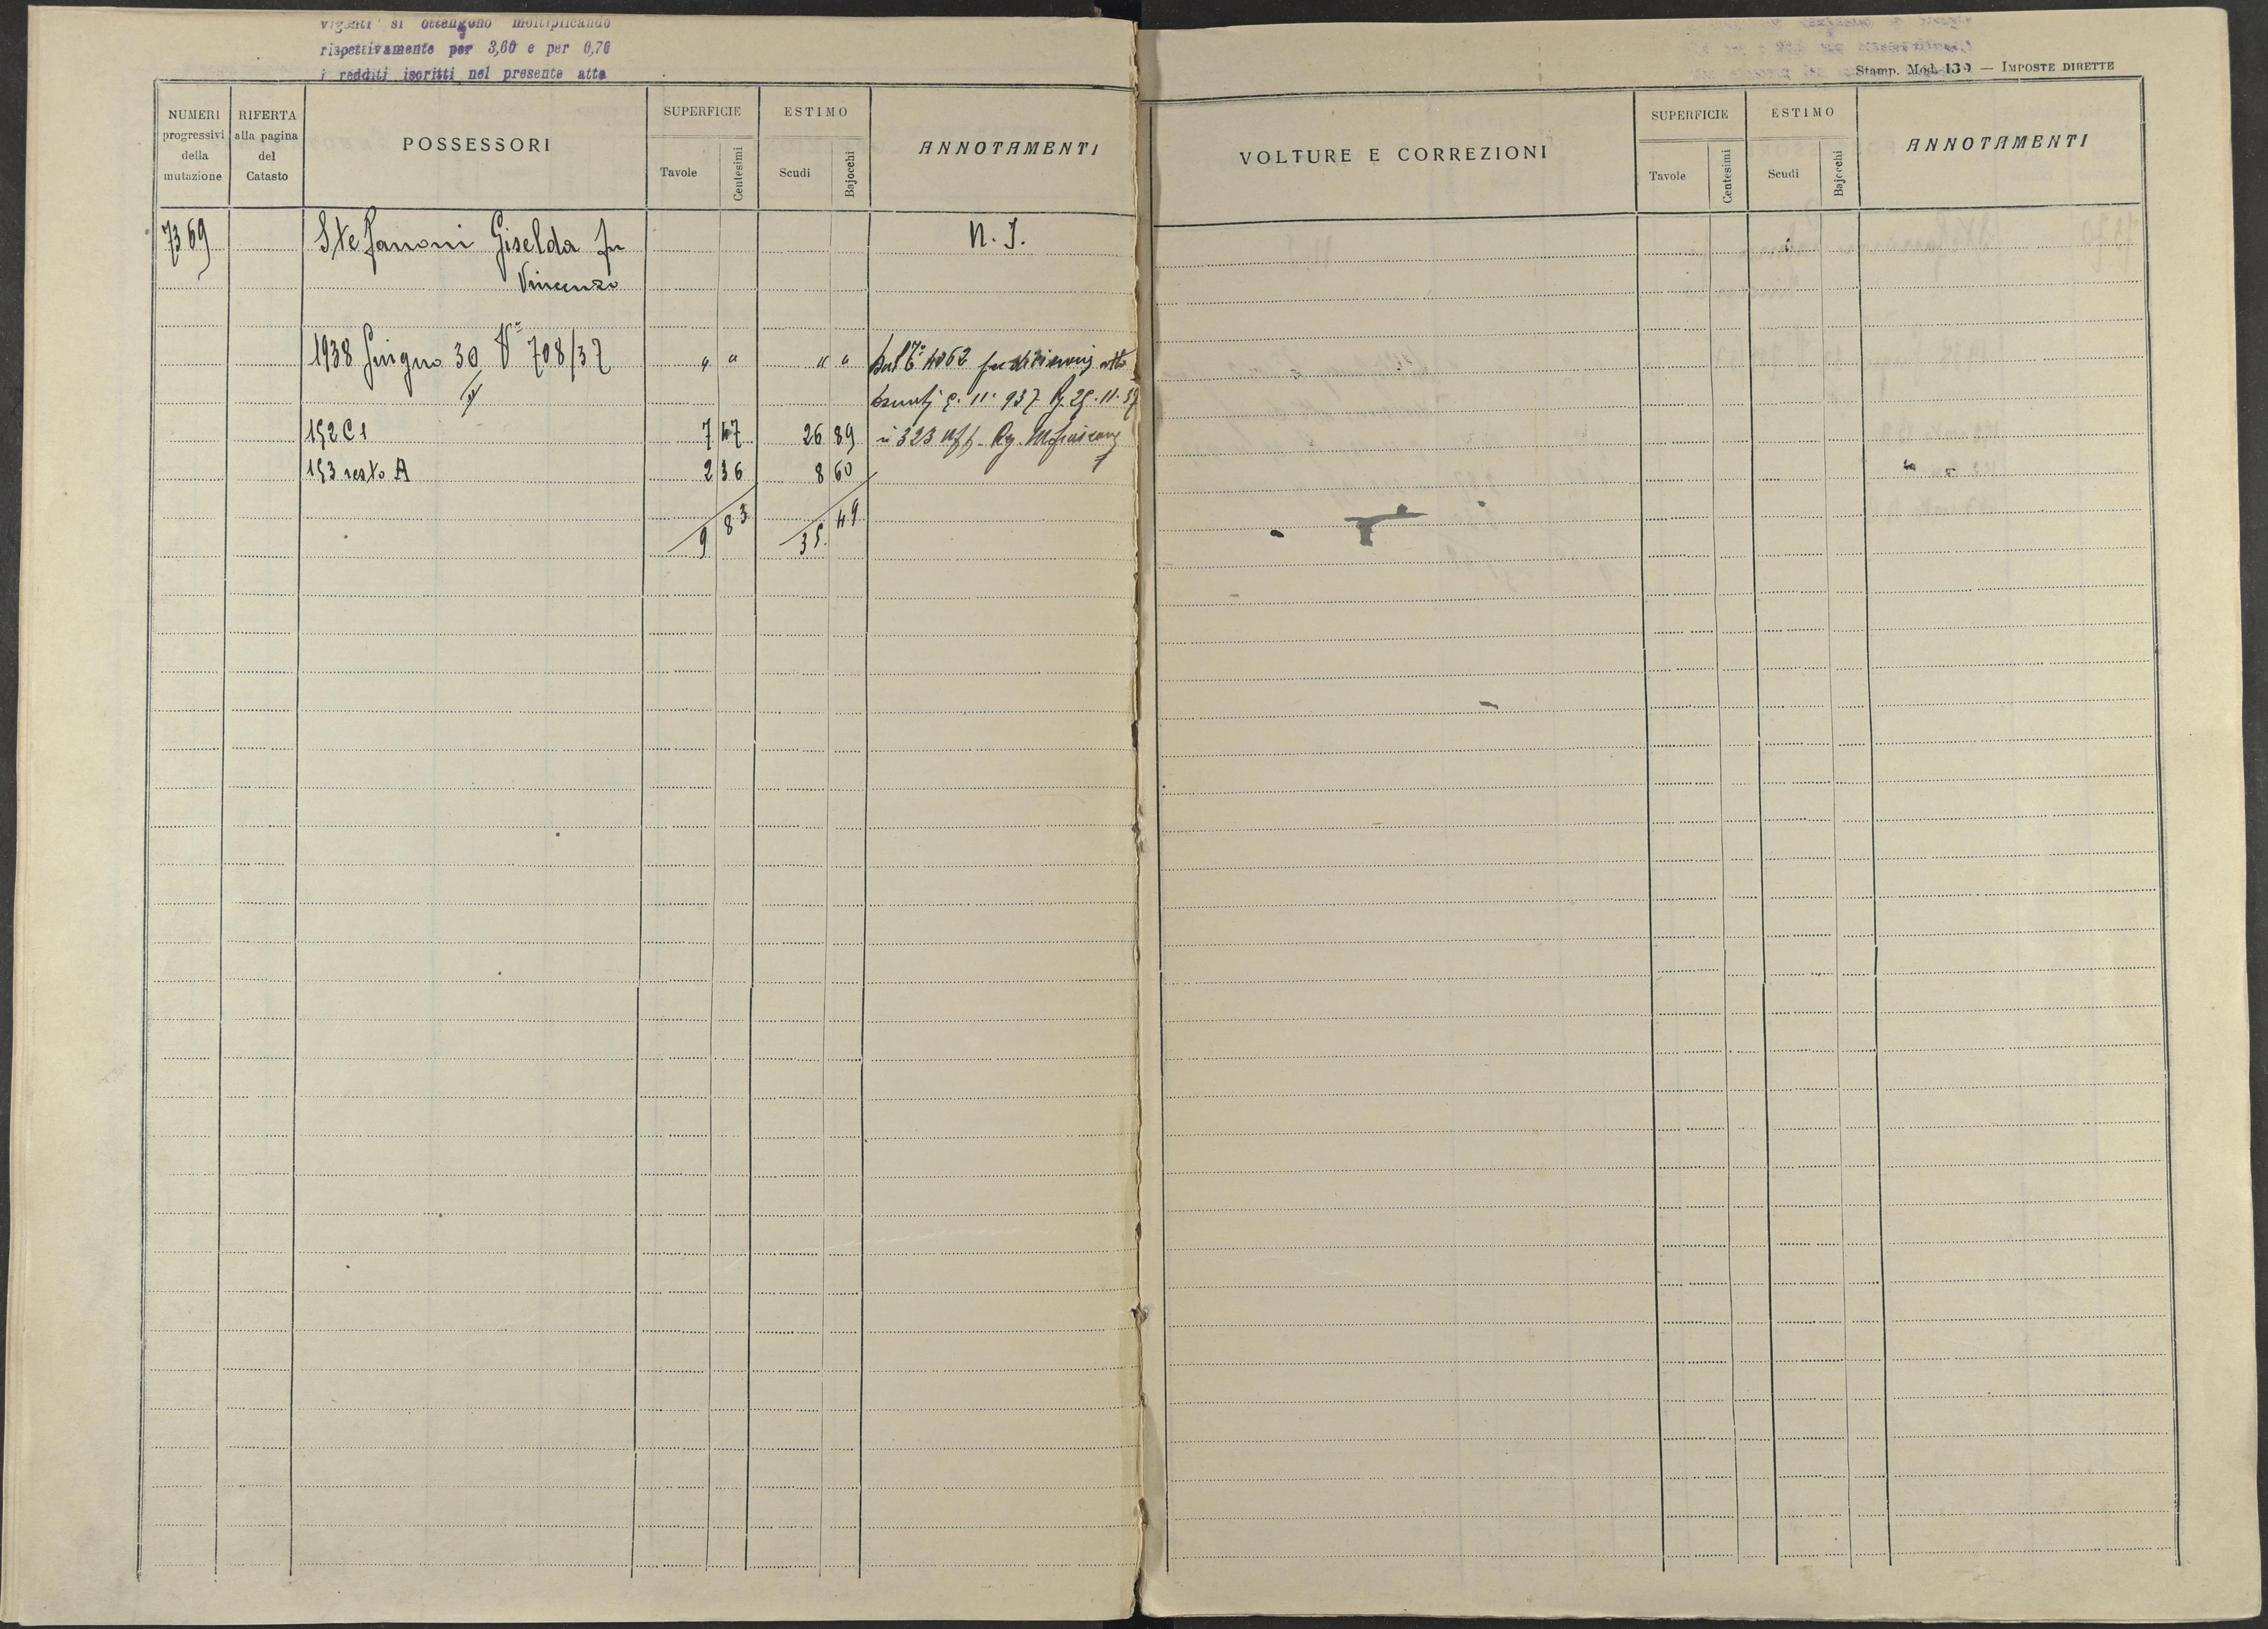 vigenti si ottengono moltiplicando
rispettivamente per 3,60 e per 0,70
i redditi iscritti nel presente atto
Stamp. Mod. 139 — IMPOSTE DIRETTE
NUMERI progressivi della mutazione
RIFERTA alla pagina del Catasto
POSSESSORI
SUPERFICIE
Tavole Centesimi
ESTIMO
Scudi Bajocchi
ANNOTAMENTI
7369 Stefanoni Giselda fu N. I.
Vincenzo
1938 Giugno 30 Vª 708/37 " " " " Dal 4062 per atto
9. 11. 937 R. 29. 11. 37
192 C1 7 47 26 89 n 323 Uff. Reg.
193 resto A 2 36 8 60
9 83 35 49
VOLTURE E CORREZIONI
SUPERFICIE
Tavole Centesimi
ESTIMO
Scudi Bajocchi
ANNOTAMENTI